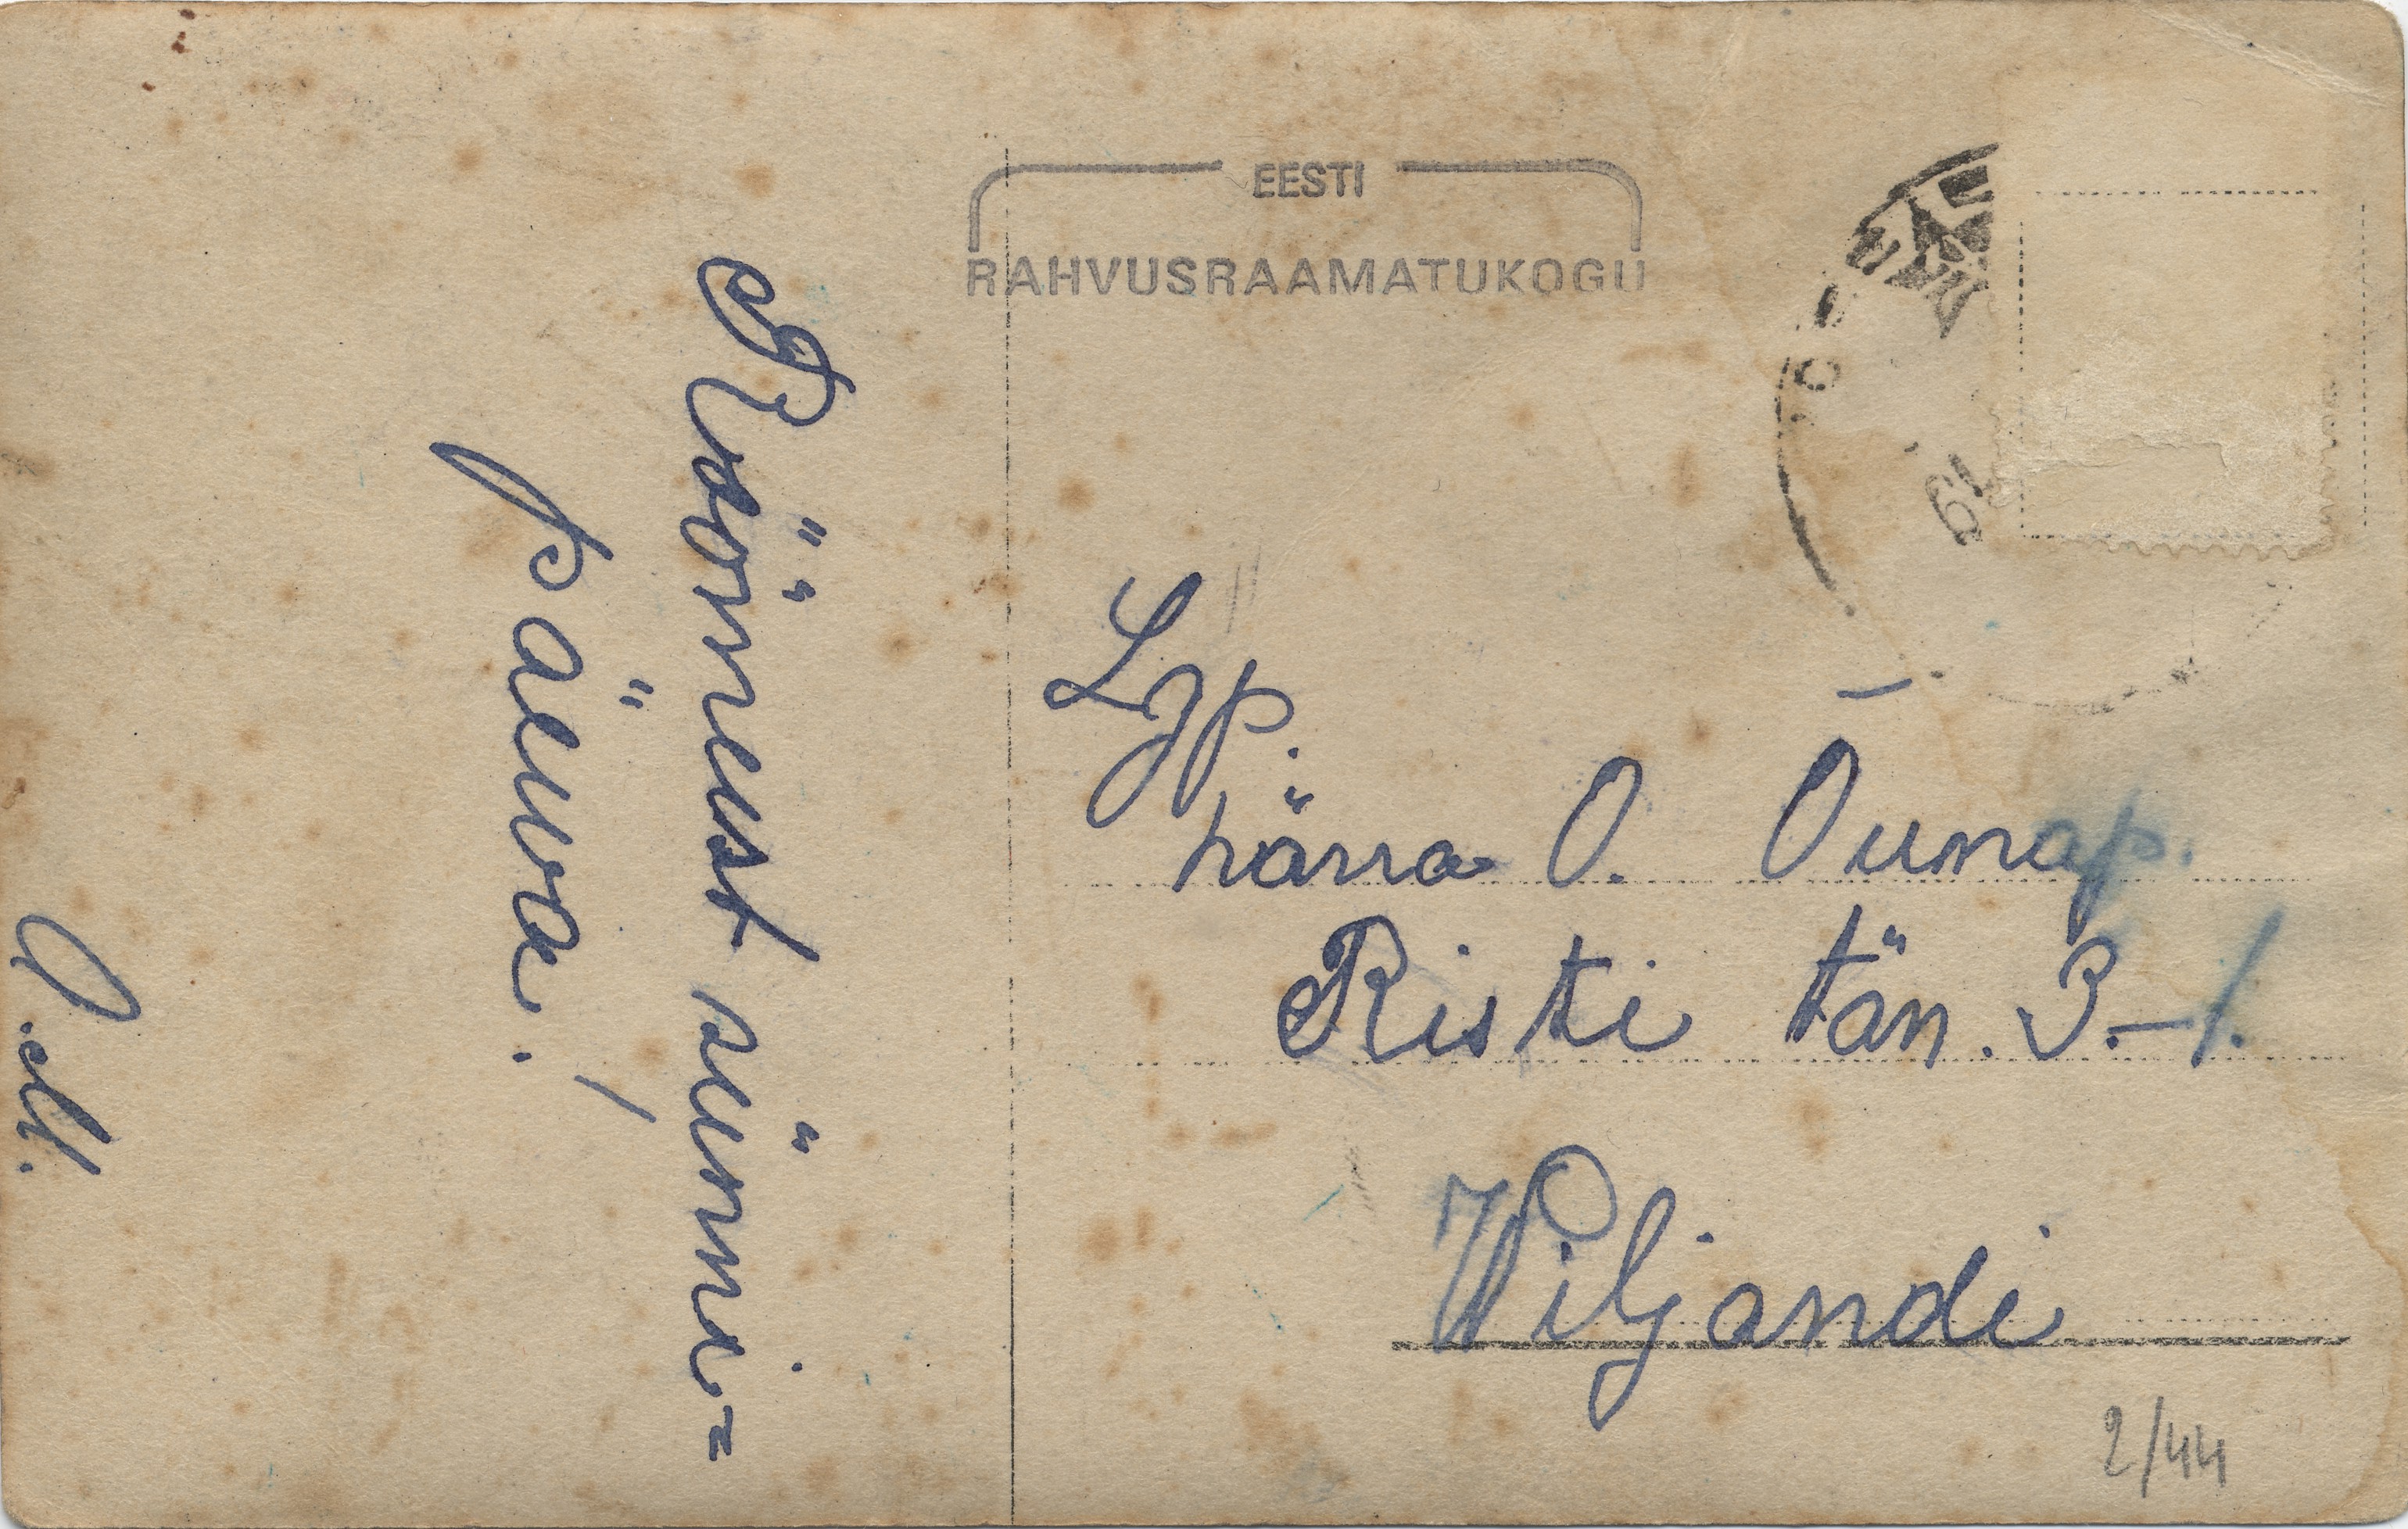 Rõõmust sünni=
päeva!
O. M.
EESTI
RAHVUSRAAMATUKOGU
Lgp.
härra O. Õunap.
Risti tän. 3.-1.
Viljandi
2/44